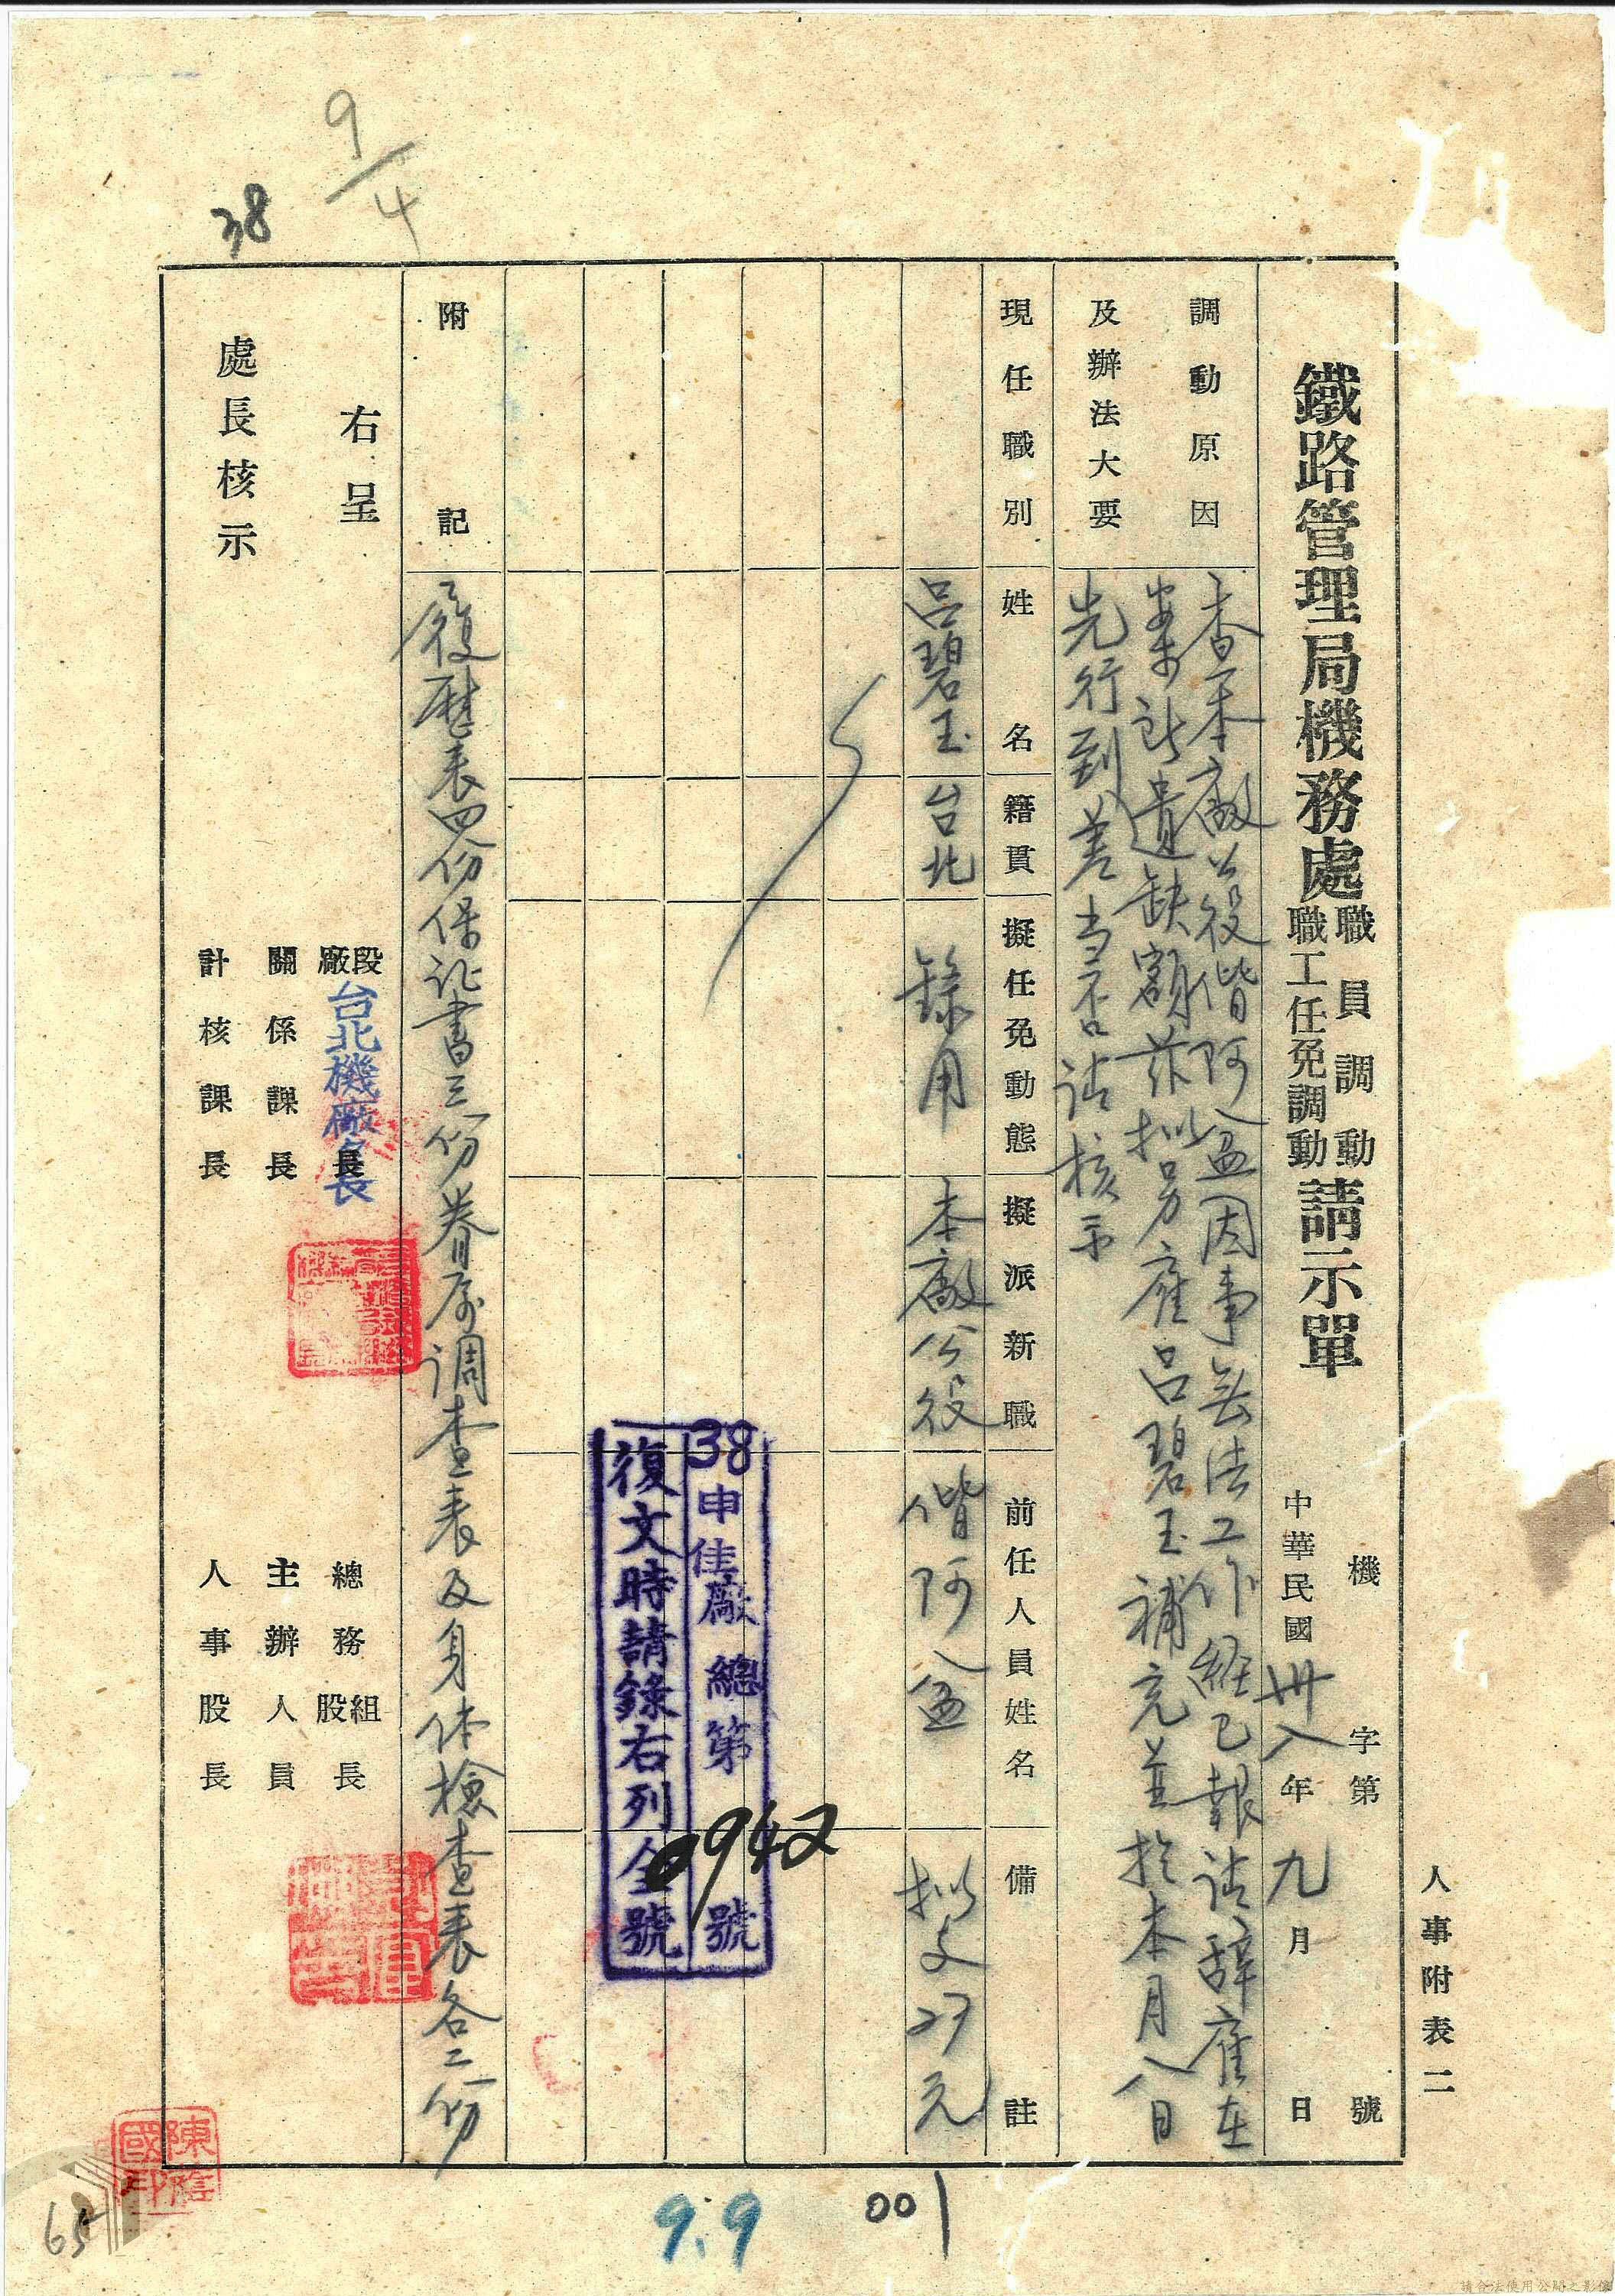 人事附表二
鐵路管理局機務處職員調動職工任免調動請示單
機字第 號
中華民國卅八年九月 日
調動原因及辦法大要
查本廠公役偕阿盆因事無法工作經已報請辭雇在
案所遺缺額茲拟另雇呂碧玉補充並於本月八日
先行到差当否請核示
現任職別 姓名 籍貫 擬任免動態 擬派新職 前任人員姓名 備註
呂碧玉 台北 錄用 本廠公役 偕阿盆 拟支27元
38申佳廠總第0942號
復文時請錄右列全號
附記
履歷表四份保证書三份眷屬调查表及身体檢查表各二份
右呈
處長核示
段廠長 台北機廠長
關係課長
計核課長
總務組股長
主辦人員
人事股長
9/4
38
9.9
001
請合法使用公開之影像